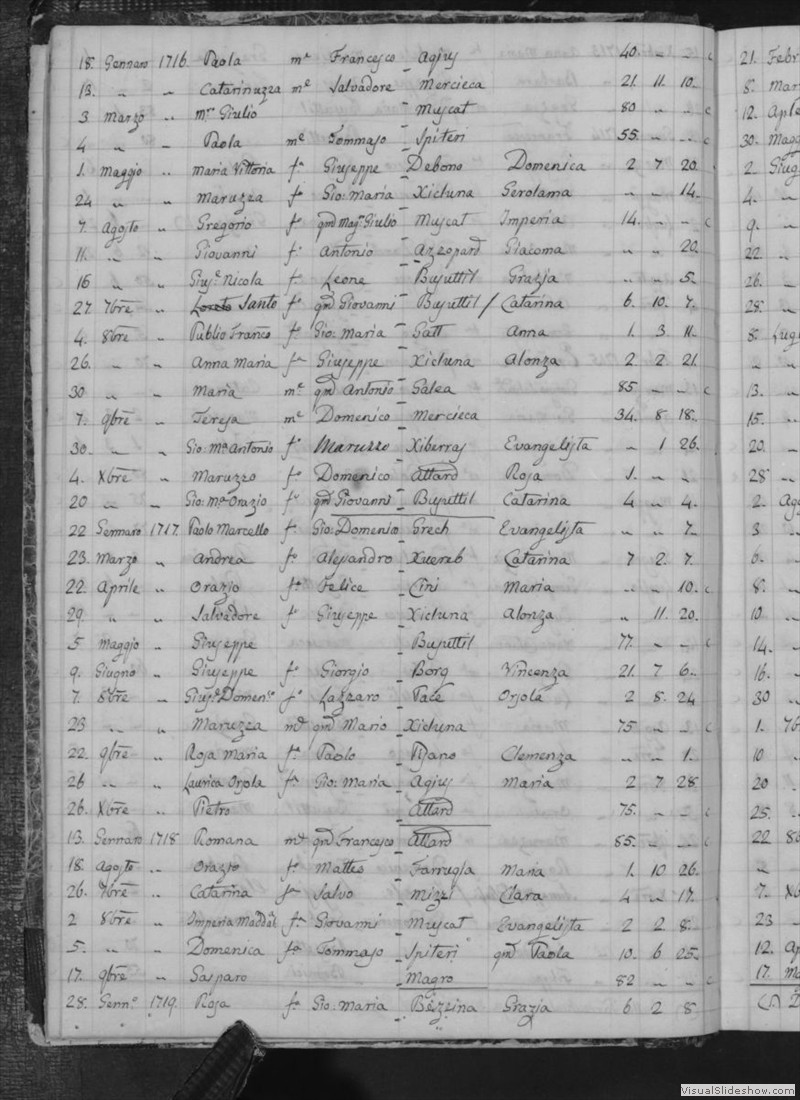 18. Gennaro 1716. Paola mᵉ Francesco Agius 40. – – c
13. „ „ Catarinuzza mᵉ Salvadore Mercieca 21. 11. 10.
3 Marzo „ mʳᵒ Giulio Muscat 80 – – c
4 „ „ Paola mᵉ Tommaso Spiteri 55. – – c
1. Maggio „ Maria Vittoria fᵃ Giuseppe Debono Domenica 2 7 20.
24 „ „ Maruzza fᵃ Gio: Maria Xicluna Gerolama „ „ 14.
7. Agosto „ Gregorio fᵒ qm̃ Magᶜᵒ Giulio Muscat Imperia 14. – – c
11. „ „ Giovanni fᵒ Antonio Azzopard Giacoma „ „ 20.
16 „ „ Giusᵉ Nicola fᵒ Leone Busuttil Grazia „ „ 5.
27. 7bre „ Santo fᵒ qm̃ Giovanni Busuttil / Catarina 6. 10. 7.
4. 8bre „ Publio Francᵒ fᵒ Gio: Maria Gatt Anna 1. 3 11.
26. „ „ Anna Maria fᵃ Giuseppe Xicluna Alonza 2 2 21.
30 „ „ Maria mᵉ qm̃ Antonio Galea 85 – – c
7. 9bre „ Teresa mᵉ Domenico Mercieca 34. 8 18.
30. „ „ Gio: Mᵃ Antonio fᵒ Maruzzo Xiberras Evangelista „ 1 26.
4. Xbre „ Maruzzo fᵒ Domenico Attard Rosa 1. „ „
20 „ „ Gio: Mᵃ Orazio fᵒ qm̃ Giovanni Busuttil Catarina 4 „ 4.
22 Gennaro 1717. Paolo Marcello fᵒ Gio: Domenico Grech Evangelista „ „ 7.
23. Marzo „ Andrea fᵒ Alesandro Xuereb Catarina 7 2. 7.
22. Aprile „ Orazio fᵒ Felice Cini Maria „ „ 10. c
29. „ „ Salvadore fᵒ Giuseppe Xicluna Alonza „ 11. 20.
5 Maggio „ Giuseppe Busuttil 77. – – c
9. Giugno „ Giuseppe fᵒ Giorgio Borg Vincenza 21. 7 6.
7. 8bre „ Giusᵉ Domenᶜᵒ fᵒ Lazzaro Pace Orsola 2 8. 24
23 „ „ Maruzza mᵉ qm̃ Mario Xicluna 75 – – c
22. 9bre „ Rosa Maria fᵃ Paolo Pisano Clemenza „ „ 1.
26 „ „ Laurica Orsola fᵃ Gio: Maria Agius Maria 2 7 28.
26. Xbre „ Pietro Attard 75. – – c
13. Gennaro 1718. Romana mᵉ qm̃ Francesco Attard 85. – – c
18. Agosto „ Orazio fᵒ Matteo Farrugia Maria 1. 10 26.
26. 7bre „ Catarina fᵃ Salvo Mizzi Clara 4 „ 17.
2 8bre „ Imperia Maddᵃˡ fᵃ Giovanni Muscat Evangelista 2 2 8.
5. „ „ Domenica fᵃ Tommaso Spiteri qm̃ Paola 10. 6 25.
17. 9bre „ Gasparo Magro 82 „ „ c
28. Gennᵒ 1719. Rosa fᵃ Gio: Maria Bezzina Grazia 6 2 8.
21. Febr
8. Mar
12. Aple
30. Magg
2. Giug
4.
9.
22.
26.
28.
8. Lug
„
13.
15.
20.
28
2. Ago
3
6.
8.
10
14.
16.
30
1. 7b
10
20
25.
22 8b
„
7. Xb
23
12. Ap
17. Ma
VisualSlideshow.com